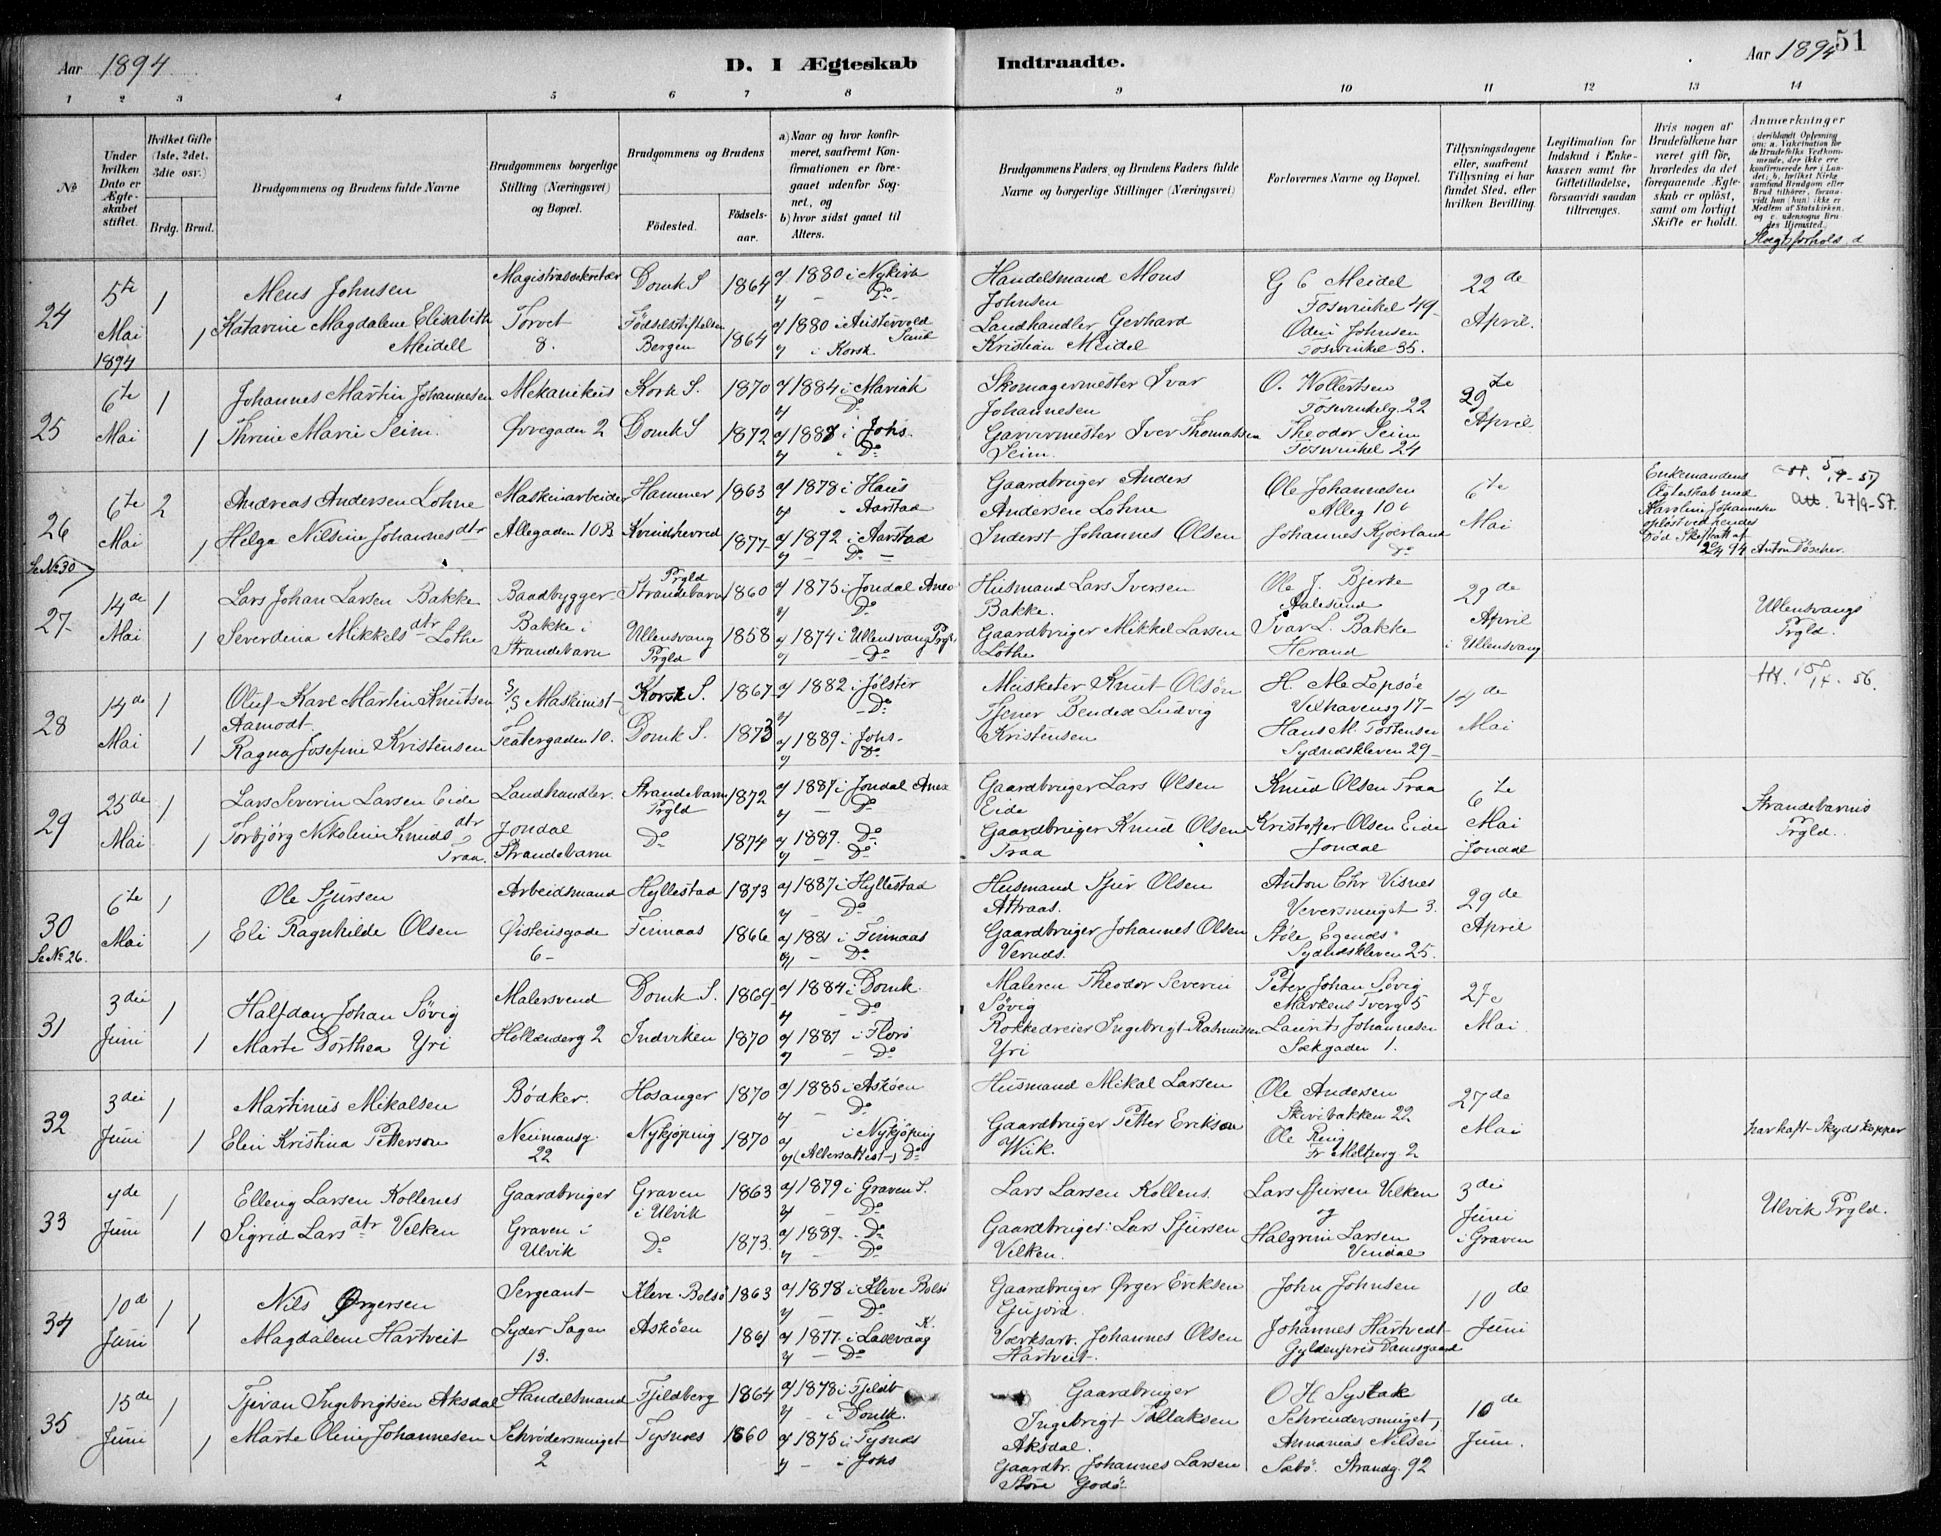 Aar 1894
D. I Ægteskab
Indtraadte.
Aar 1894
51
1 2 3 4 5 6 7 8 9 10 11 12 13 14
No
Under hvilken Dato er Ægteskabet stiftet.
Hvilket Gifte (1ste, 2det, 3die osv.)
Brdg. Brud.
Brudgommens og Brudens fulde Navne
Brudgommens borgerlige Stilling (Næringsvei) og Bopæl.
Brudgommens og Brudens
Födested.
Födselsaar.
a) Naar og hvor konfirmeret, saafremt Konfirmationen er foregaaet udenfor Sognet, og
b) hvor sidst gaaet til Alters.
Brudgommens Faders, og Brudens Faders fulde Navne og borgerlige Stillinger (Næringsvei)
Forlovernes Navne og Bopæl.
Tillysningsdagene eller, saafremt Tillysning ei har fundet Sted, efter hvilken Bevilling.
Legitimation for Indskud i Enkekassen samt for Giftetilladelse, forsaavidt saadan tiltrænges.
Hvis nogen af Brudefolkene har været gift för, hvorledes da det foregaaende Ægteskab er oplöst, samt om lovligt Skifte er holdt.
Anmerkninger
24
5te Mai 1894
1 1
Mons Johnsen
Katarine Magdalene Elisabeth
Meidell
Magistratssekretær
Torvet
8.
Domk S.
Födselsstiftelsen
Bergen
1864
1864
a) 1880 i Nykirk
b) - Do -
a) 1880 i Austevold
b) i Korsk
Handelsmand Mons
Johnsen
Landhandler Gerhard
Kristian Meidel
G C Meidel
Foswinkel 49
Odin Johnsen
Foswinkel 35.
22de
April.
25
6te Mai
1 1
Johannes Martin Johannesen
Thrine Marie Seim.
Mekanikus
Øvregaden 2
Korsk S.
Domk S
1870
1872
a) 1884 i Mariak
b) Do
a) 1887 i Johs.
b) Do
Skomagermester Ivar
Johannesen
Garvermester Iver Thomassen
Seim.
O. Wollertsen
Foswinkelg 22
Theodor Seim
Foswinkel 24
29te
April
26
Se No 30
6te Mai
2 1
Andreas Andersen Lohne
Helga Nilsine Johannesdtr
Maskinarbeider
Allegaden 10B
Hammer
Kvindherred
1863
1877
a) 1878 i Haus
b) Aarstad
a) 1892 i Aarstad
b) - Do -
Gaardbruger Anders
Andersen Lohne
Inderst Johannes Olsen
Ole Johannesen
Alleg 10 b
Johannes Kjoerland
Do
6te
Mai
Enkemandens
Ægteskab med
Karoline Johannesen
oplöst ved hendes
Död
Att. 27/9-57.
Anton Döscher.
27
14de Mai
1 1
Lars Johan Larsen Bakke
Severdina Mikkelsdtr Lothe
Baadbygger
Bakke i
Strandebarm
Prgld
Strandebarm
Ullensvang
Prgld
1860
1858
a) 1875 i Jondal Anex
b) Do
a) 1874 i Ullensvang Prgld
b) - Do
Husmand Lars Iversen
Bakke.
Gaardbruger Mikkel Larsen
Lothe
Ole J. Bjerke
Aalesund
Ivar L. Bakke
Herand
29de
April
i Ullensvang
Ullensvangs
Prgld.
28
14de Mai
1 1
Oluf Karl Martin Knutsen
Aamodt
Ragna Josefine Kristensen
S/S Maskinist
Teatergaden 10.
Korsk S.
Domk S.
1867
1873
a) 1882 i Jölster
b) - Do
a) 1889 i Johs.
b) Do
Musketer Knut Olsön
Tjener Bendix Ludvig
Kristensen
H. Me Lepsöe
Vexhavensg 17
Hans M. Tostensen
Sydnæskleven 29
14de
Mai
29
25de Mai
1 1
Lars Severin Larsen Eide
Torbjörg Nikoline Knudsdtr
Traa.
Landhandler.
Jondal
Strandebarm
Strandebarm
Prgld
Do
1872
1874
a) 1887 i Jondal Anex
b) - Do
a) 1889. Do
b) - Do
Gaardbruger Lars Olsen
Eide
Gaardbruger Knud Olsen
Traa
Knud Olsen Traa
Kristoffer Olsen Eide
Jondal
6te
Mai
Jondal
Strandebarms
Prgld.
30
Se No 26.
6te Mai
1 1
Ole Sjursen
Eli Ragnhilde Olsen
Arbeidsmand
Øistensgade
6
Hyllestad
Finnaas
1873
1866
a) 1887 i Hyllestad
b) - Do
a) 1881 i Finnaas
b) - Do
Husmand Sjur Olsen
Attraas.
Gaardbruger Johannes Olsen
Veruds.
Anton Chr Visnes
Veversmuget 3.
Støle Egends
Sydnæskleven 25.
29de
April
31
3die Juni
1 1
Halfdan Johan Sövig
Marte Dorthea Yri
Malersvend
Hollænderg 2
Domk S.
Indviken
1869
1870
a) 1884 i Domk.
b) - Do
a) 1887 i Florö
b) - Do
Maleren Theodor Severin
Sövig
Rokkedreier Ingebrigt Rasmussen
Yri
Peter Johan Sövig
Markens Tverg 5
Laurits Johannesen
Sækgaden 1.
27e
Mai
32
3die Juni
1 1
Martinus Mikalsen
Elin Kristina Petterson
Bödker.
Neumansg.
22
Hosanger
Nykjöping
1870
1870
a) 1885 i Askøen
b) - Do
a) i Nykjöping
b) (Altersattest) Do
Husmand Mikal Larsen
Gaardbruger Petter Erikson
Wiik.
Ole Andersen
Skivebakken 22
Ole Ring
Fr Meltzerg 2
27de
Mai
har havt Skydskopper
33
7de Juni
1 1
Elleng Larsen Kollenes
Sigrid Larsdtr Velken
Gaardbruger
Graven i
Ulvik
Graven
i Ulvik
Do
1863
1873.
a) 1879 i Graven S.
b) - Do
a) 1889. - Do
b) - Do
Lars Larsen Kollens.
Gaardbruger Lars Sjursen
Velken.
Lars Sjursen Velken
og
Halgrim Larsen
Vindal
3die
Juni
i Graven
Ulvik Prgld.
34
10de Juni
1 1
Nils Ørgersen
Magdalene Hartveit
Sergeant
Lyder Sagen
13.
Kleve Bolsö
Askøen
1863
1861
a) 1878 i Kleve Bolsö
b) - Do
a) 1877 i Laxevaag K.
b) - Do
Gaardbruger Ørger Eriksen
Gujord.
Værksarb. Johannes Olsen
Hartveit.
John Johnsen
og
Johannes Hartvedt
Gyldenpris Damsgaard
10de
Juni
35
15de Juni
1 1
Tjeran Ingebrigtsen Aksdal
Marte Oline Johannesen
Handelsmand
Schrödersmuget
2
Fjeldberg
Tysnæs
1864
1860
a) 1878 i Fjeldb
b) - i Domk.
a) 1875 i Tysnæs
b) - i Johs
Gaardbruger
Ingebrigt Tollaksen
Aksdal.
Gaardbr. Johannes Larsen
Store Godö
O H Systak
Schreudersmuget,
Annanias Nilsen
Sæbö. Strandg. 92
10de
Juni.